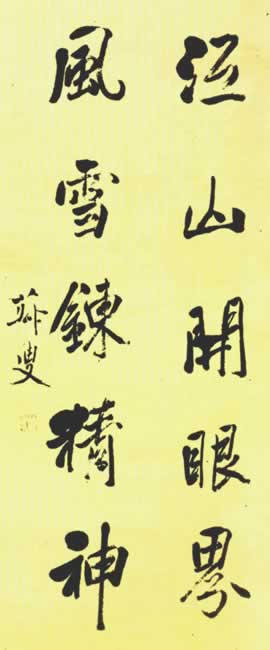 江山開眼界
風雪鍊精神
叟